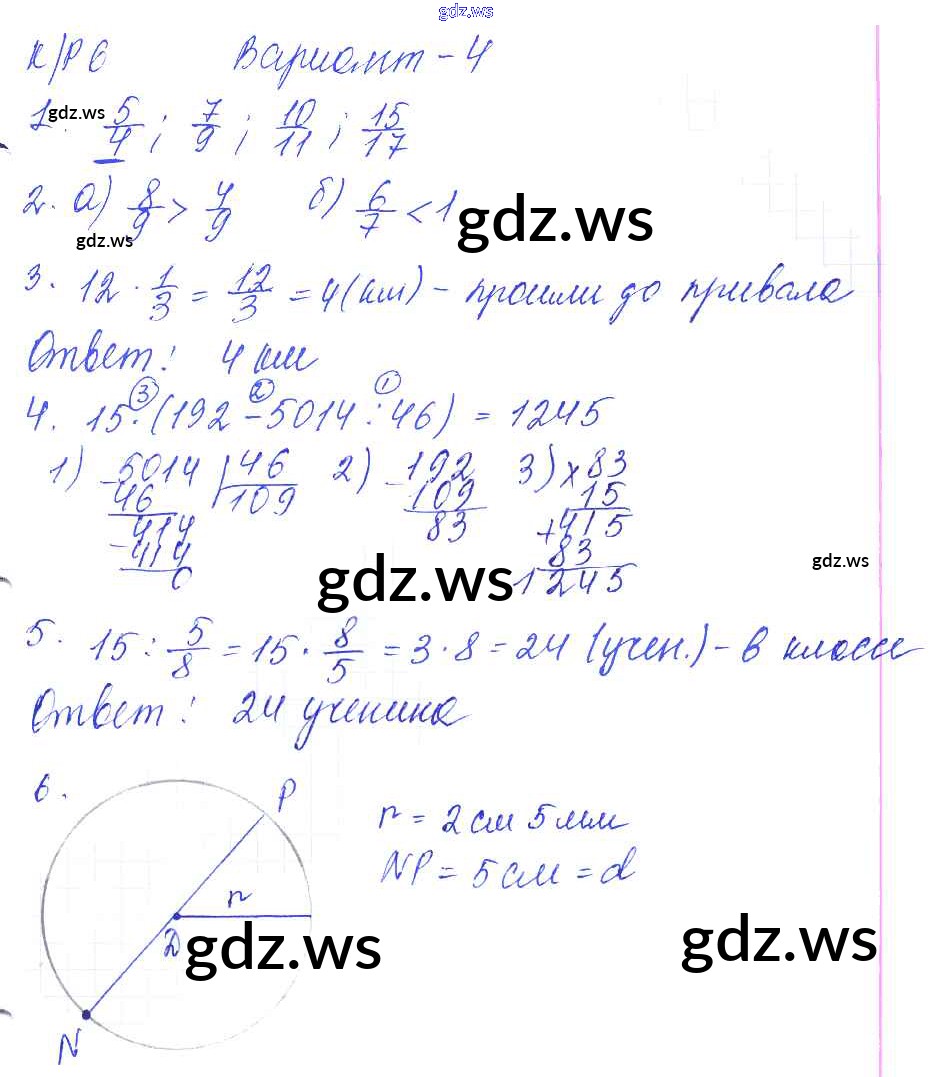 gdz.ws
К/Р 6 Вариант - 4
1. 5/4 ; 7/9 ; 10/11 ; 15/17
gdz.ws
2. а) 8/9 > 4/9 б) 6/7 < 1
gdz.ws
gdz.ws
3. 12 · 1/3 = 12/3 = 4 (км) - прошли до привала
Ответ: 4 км
3 2 1
4. 15 · (192 - 5014 : 46) = 1245
1) 5014 | 46 2) 192 3) × 83
- 46 109 - 109 15
414 83 + 415
- 414 83
0 1245
gdz.ws
gdz.ws
5. 15 : 5/8 = 15 · 8/5 = 3 · 8 = 24 (учен.) - в классе
Ответ: 24 ученика
6.
P
r = 2 см 5 мм
NP = 5 см = d
r
D
gdz.ws
gdz.ws
N